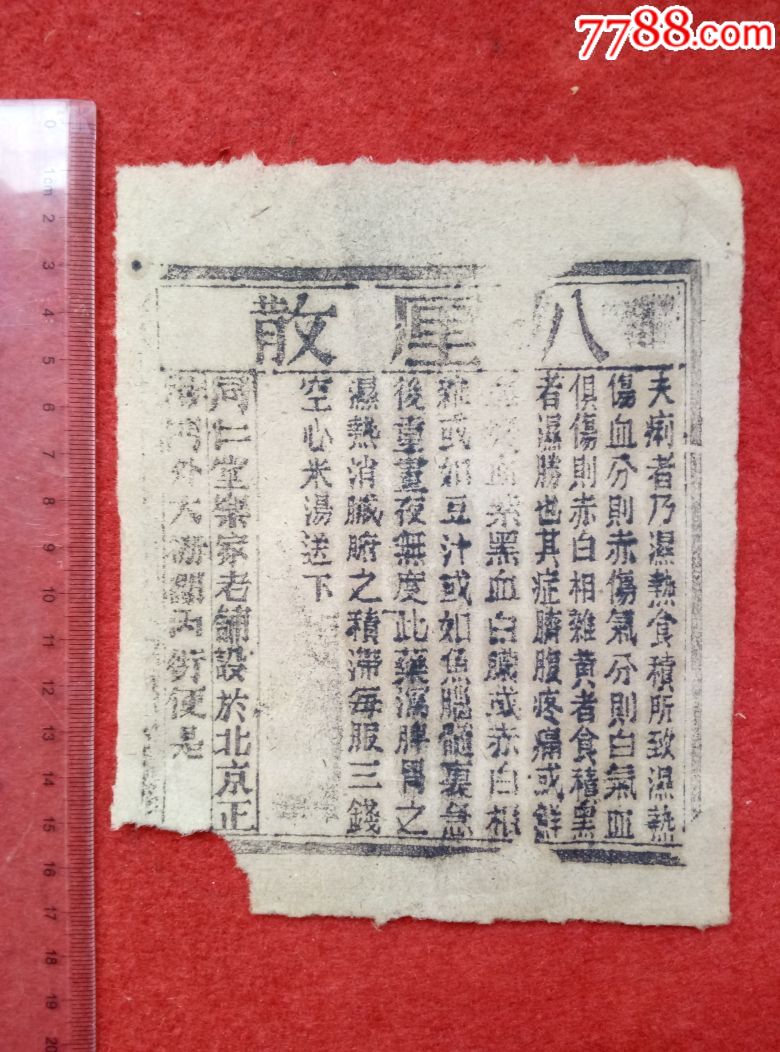 7788.com
八厘散
夫痢者乃濕熱食積所致濕熱
傷血分則赤傷氣分則白氣血
俱傷則赤白相雜黃者食積黑
者濕勝也其症臍腹疼痛或鮮
血紫黑血白膿或赤白相
雜或如豆汁或如魚腦髓裏急
後重晝夜無度此藥瀉脾胃之
濕熱消臟腑之積滯每服三錢
空心米湯送下
同仁堂樂家老舖設於北京正
陽門外大柵欄內街便是
0
1cm
2
3
4
5
6
7
8
9
10
11
12
13
14
15
16
17
18
19
20